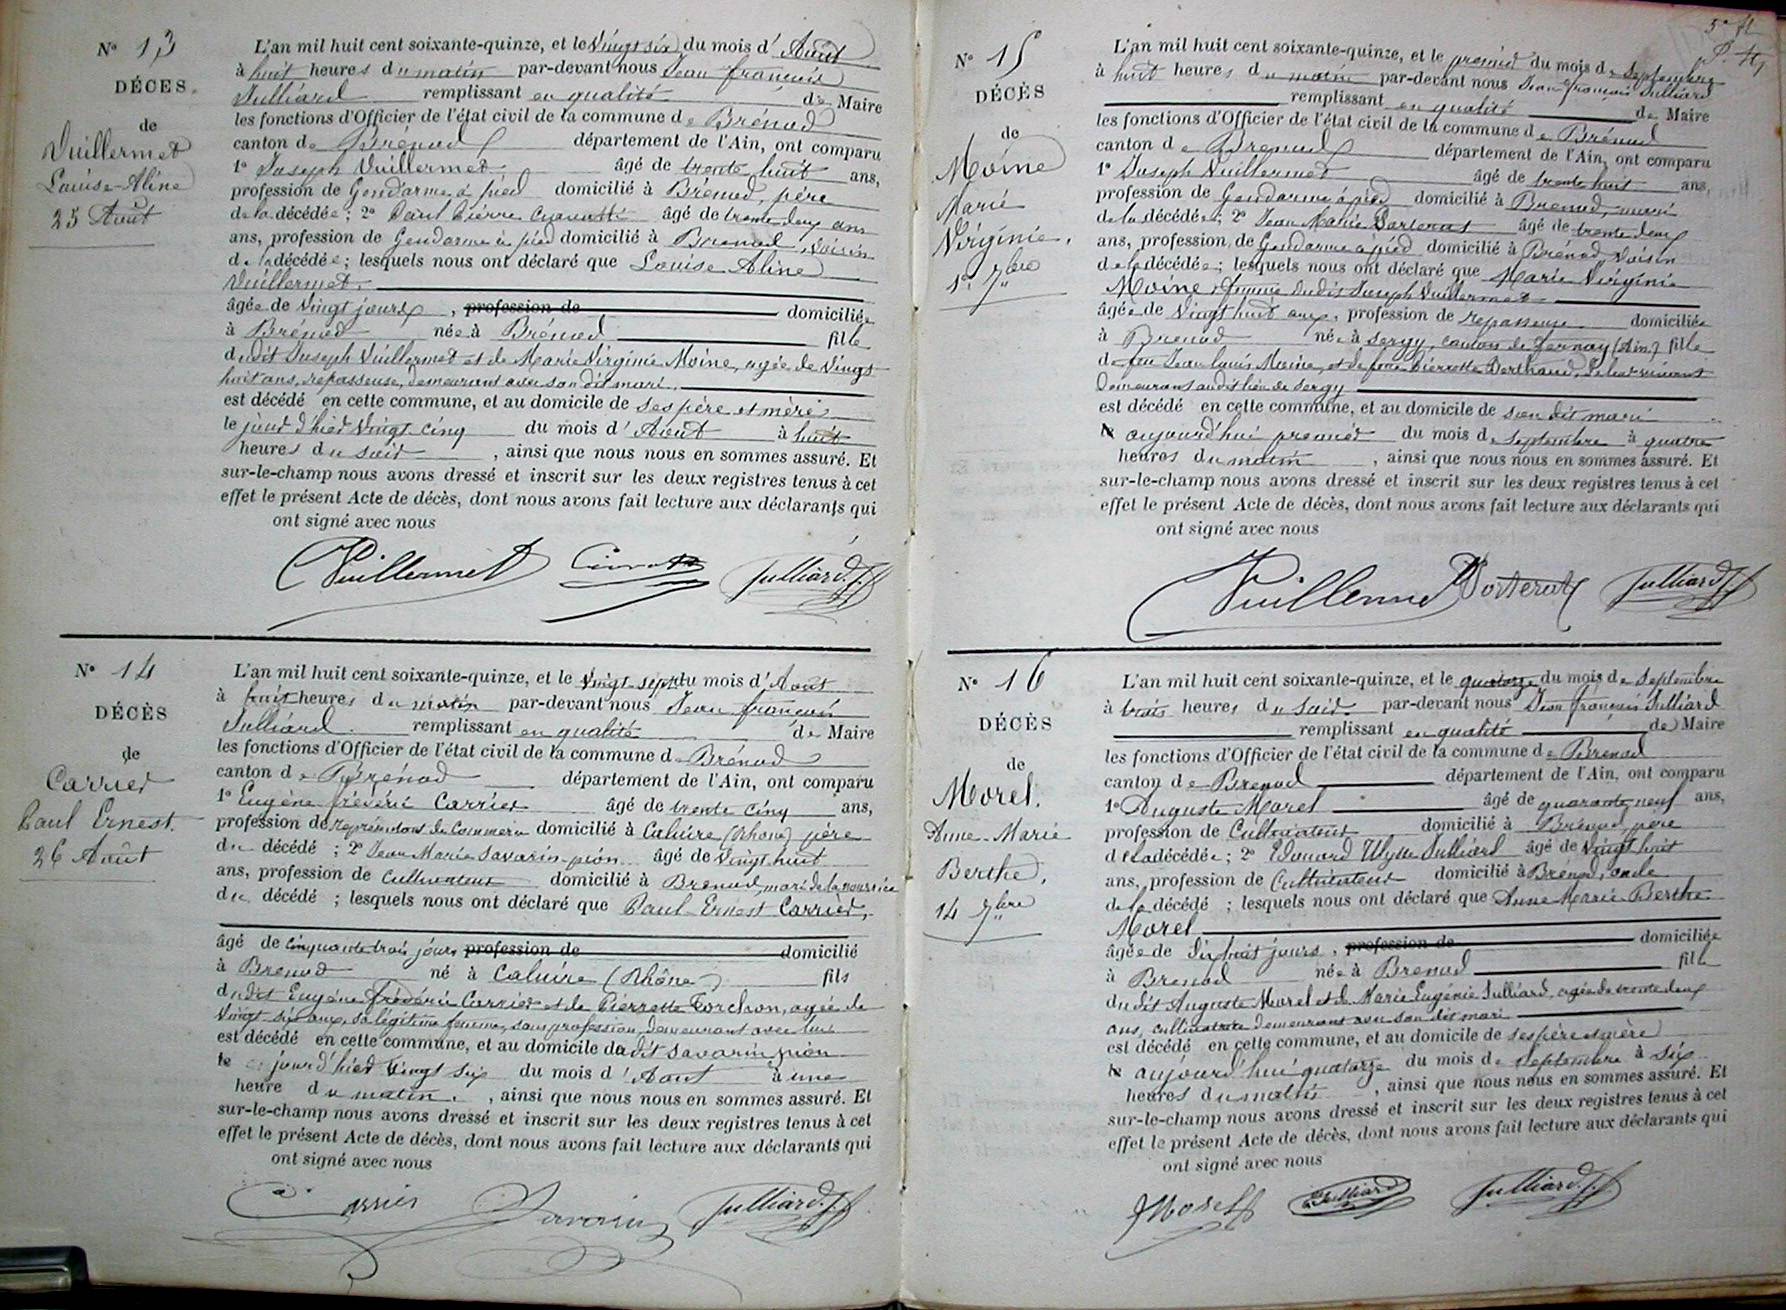 N° 13
DÉCÈS.
de
Vuillermet
Louise-Aline
25 Août
L'an mil huit cent soixante-quinze, et le Vingt six du mois d' Août
à huit heures du matin par-devant nous Jean françois
Julliard remplissant en qualité de Maire
les fonctions d'Officier de l'état civil de la commune de Brénod
canton de Brénod département de l'Ain, ont comparu
1° Joseph Vuillermet âgé de trente huit ans,
profession de Gendarme à pied domicilié à Brénod, père
de la décédée; 2° Paul Pierre âgé de trente deux ans
ans, profession de Gendarme à pied domicilié à Brenod, voisin
de la décédée; lesquels nous ont déclaré que Louise Aline
Vuillermet.
âgée de Vingt jours, profession de domiciliée
à Brénod née à Brénod fille
dudit Joseph Vuillermet et de Marie Virginie Moine, agée de Vingt
huit ans, repasseuse, demeurant avec son dit mari.
est décédé en cette commune, et au domicile de ses père et mère
le jour d'hier Vingt cinq du mois d' Août à huit
heures du soir, ainsi que nous nous en sommes assuré. Et
sur-le-champ nous avons dressé et inscrit sur les deux registres tenus à cet
effet le présent Acte de décès, dont nous avons fait lecture aux déclarants qui
ont signé avec nous
Vuillermet Julliard J.f
N° 14
DÉCÈS
de
Carrier
Paul Ernest.
26 Août
L'an mil huit cent soixante-quinze, et le Vingt-sept du mois d' Août
à huit heures du matin par-devant nous Jean françois
Julliard remplissant en qualité de Maire
les fonctions d'Officier de l'état civil de la commune de Brénod
canton de Brénod département de l'Ain, ont comparu
1° Eugène frédéric Carrier âgé de trente cinq ans,
profession de représentant de Commerce domicilié à Caluire (Rhône) père
du décédé; 2° Jean Marie Savarin-pion âgé de Vingt huit
ans, profession de Cultivateur domicilié à Brenod, mari de la nourrice
du décédé; lesquels nous ont déclaré que Paul Ernest Carrier,
âgé de cinquante trois jours profession de domicilié
à Brenod né à Caluire (Rhône) fils
dudit Eugène frédéric Carrier et de Pierrette Torchon, agée de
Vingt six ans, sa légitime femme, sans profession, demeurant avec lui
est décédé en cette commune, et au domicile dudit Savarin pion
le jour d'hier Vingt six du mois d' Août à une
heure du matin, ainsi que nous nous en sommes assuré. Et
sur-le-champ nous avons dressé et inscrit sur les deux registres tenus à cet
effet le présent Acte de décès, dont nous avons fait lecture aux déclarants qui
ont signé avec nous
Carrier Savarin Julliard J.f
5e fl
N° 15
DÉCÈS
de
Moine
Marie
Virginie.
1er 7bre
L'an mil huit cent soixante-quinze, et le premier du mois de Septembre
à huit heures du matin par-devant nous Jean françois Julliard
remplissant en qualité de Maire
les fonctions d'Officier de l'état civil de la commune de Brénod
canton de Brenod département de l'Ain, ont comparu
1° Joseph Vuillermet âgé de trente huit ans,
profession de Gendarme à pied domicilié à Brenod, mari
de la décédée; 2° Jean Marie âgé de trente deux
ans, profession de Gendarme à pied domicilié à Brénod, Voisin
de la décédée; lesquels nous ont déclaré que Marie Virginie
Moine, femme dudit Joseph Vuillermet
âgée de Vingt huit ans, profession de repasseuse domiciliée
à Brenod née à Sergy, canton de fernay (Ain) fille
de feu Jean Louis Moine, et de feue Pierrette Berthaud, de leur vivant
demeurans audit lieu de Sergy
est décédé en cette commune, et au domicile de son dit mari
le aujourd'hui premier du mois de Septembre à quatre
heures du matin, ainsi que nous nous en sommes assuré. Et
sur-le-champ nous avons dressé et inscrit sur les deux registres tenus à cet
effet le présent Acte de décès, dont nous avons fait lecture aux déclarants qui
ont signé avec nous
Vuillermet Julliard J.f
N° 16
DÉCÈS
de
Morel.
Anne-Marie
Berthe,
14 7bre
L'an mil huit cent soixante-quinze, et le quatorze du mois de Septembre
à trois heures du soir par-devant nous Jean françois Julliard
remplissant en qualité de Maire
les fonctions d'Officier de l'état civil de la commune de Brenod
canton de Brenod département de l'Ain, ont comparu
1° Auguste Morel âgé de quarante neuf ans,
profession de Cultivateur domicilié à Brénod, père
de la décédée; 2° Edouard Ulysse Julliard âgé de Vingt huit
ans, profession de Cultivateur domicilié à Brénod, oncle
de la décédé; lesquels nous ont déclaré que Anne Marie Berthe
Morel
âgée de dix huit jours, profession de domiciliée
à Brenod née à Brenod fille
dudit Auguste Morel et de Marie Eugénie Julliard, agée de trente deux
ans, cultivatrice demeurant avec son dit mari
est décédé en cette commune, et au domicile de ses père et mère
le aujourd'hui quatorze du mois de Septembre à six
heures du matin, ainsi que nous nous en sommes assuré. Et
sur-le-champ nous avons dressé et inscrit sur les deux registres tenus à cet
effet le présent Acte de décès, dont nous avons fait lecture aux déclarants qui
ont signé avec nous
Morel Julliard Julliard J.f